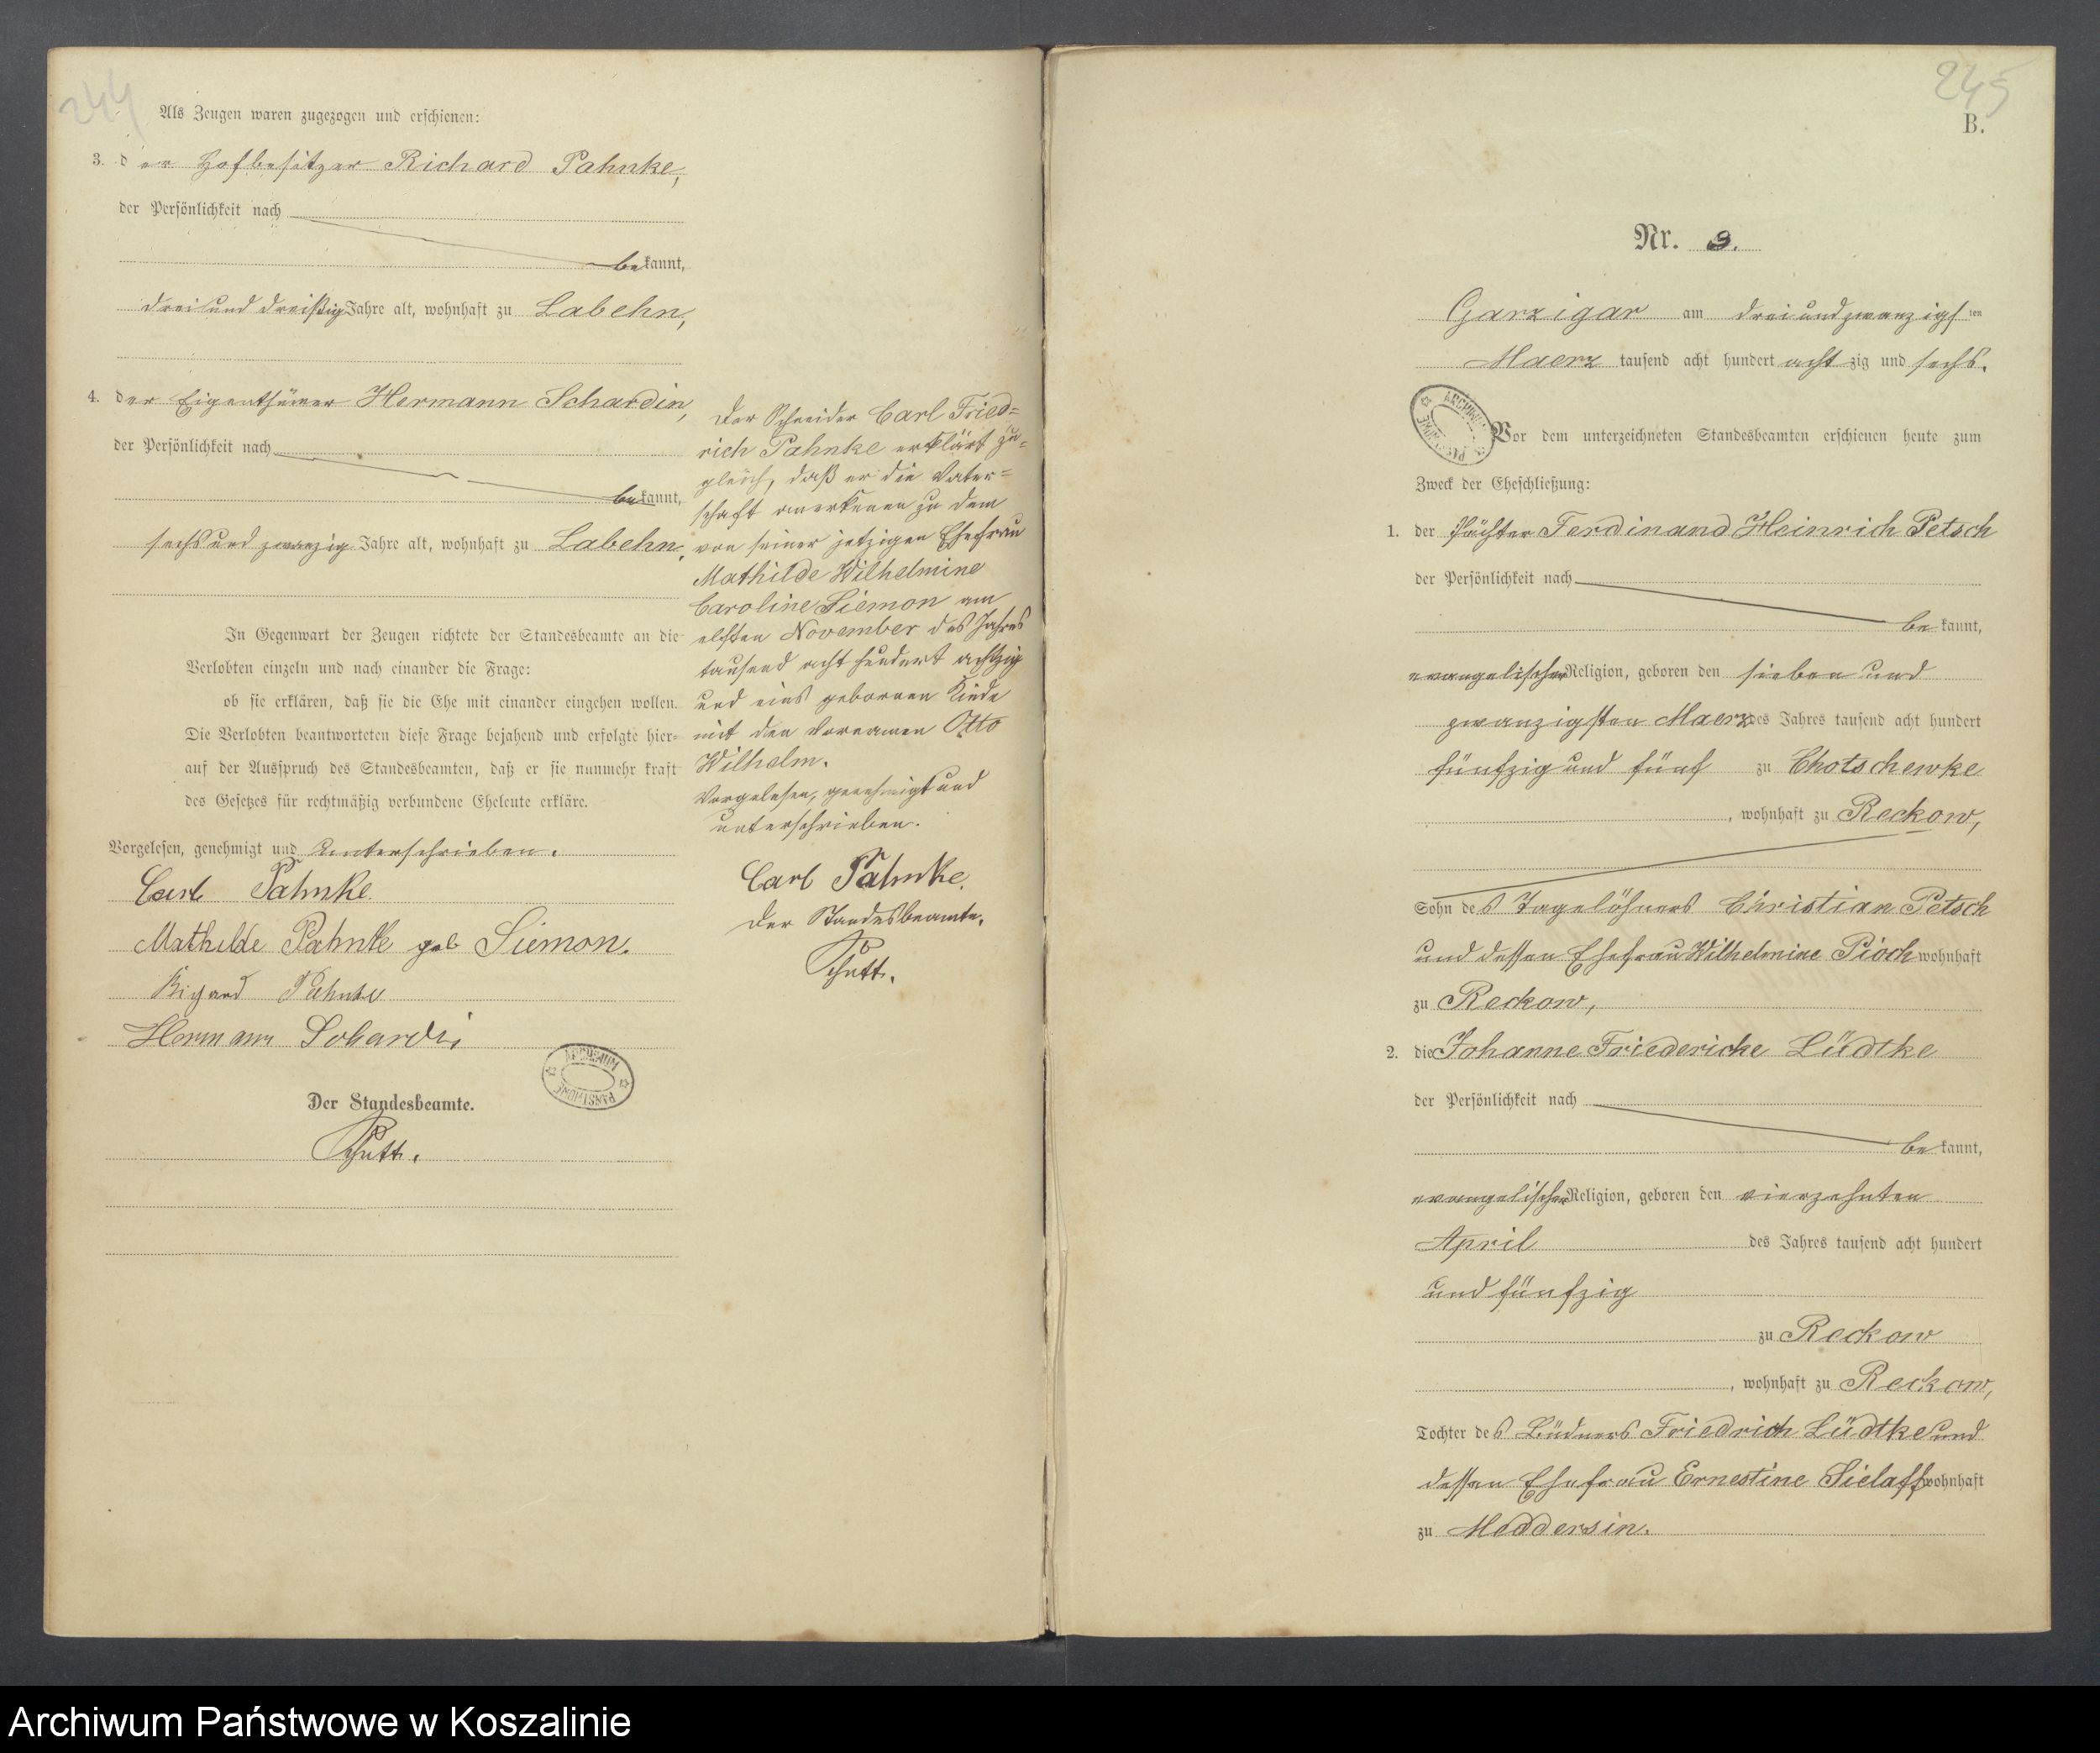 244
Als Zeugen waren zugezogen und erschienen:
3. der Hofbesitzer Richard Pahnke,
der Persönlichkeit nach
bekannt,
drei und dreißig Jahre alt, wohnhaft zu Labehn,
4. der Eigenthümer Hermann Schardin,
der Persönlichkeit nach
bekannt,
sechs und zwanzig Jahre alt, wohnhaft zu Labehn.
In Gegenwart der Zeugen richtete der Standesbeamte an die
Verlobten einzeln und nach einander die Frage:
ob sie erklären, daß sie die Ehe mit einander eingehen wollen.
Die Verlobten beantworteten diese Frage bejahend und erfolgte hier-
auf der Ausspruch des Standesbeamten, daß er sie nunmehr kraft
des Gesetzes für rechtmäßig verbundene Eheleute erkläre.
Vorgelesen, genehmigt und unterschrieben.
Carl Pahnke.
Mathilde Pahnke geb Siemon.
Rigard Pahnke
Hermann Schardin
Der Standesbeamte.
Schutt.
ARCHIWUM PAŃSTWOWE
Der Schneider Carl Fried=
rich Pahnke erklärt zu=
gleich, daß er die Vater=
schaft anerkenne zu dem
von seiner jetzigen Ehefrau
Mathilde Wilhelmine
Caroline Siemon am
elften November des Jahres
tausend acht hundert achtzig
und eins gebornen Kinde
mit den Vornamen Otto
Wilhelm.
Vorgelesen, genehmigt und
unterschrieben.
Carl Pahnke.
Der Standesbeamte.
Schutt.
245
B.
Nr. 9.
Garzigar am dreiundzwanzigsten
Maerz tausend acht hundert achtzig und sechs.
Vor dem unterzeichneten Standesbeamten erschienen heute zum
Zweck der Eheschließung:
1. der Pächter Ferdinand Heinrich Petsch
der Persönlichkeit nach
bekannt,
evangelischer Religion, geboren den sieben und
zwanzigsten Maerz des Jahres tausend acht hundert
fünfzig und fünf zu Chotschewke
, wohnhaft zu Reckow,
Sohn des Tagelöhners Christian Petsch
und dessen Ehefrau Wilhelmine Pioch wohnhaft
zu Reckow,
2. die Johanne Friedericke Lüdtke
der Persönlichkeit nach
bekannt,
evangelischer Religion, geboren den vierzehnten
April des Jahres tausend acht hundert
und fünfzig
zu Reckow
, wohnhaft zu Reckow,
Tochter des Büdners Friedrich Lüdtke und
dessen Ehefrau Ernestine Sielaff wohnhaft
zu Meddersin.
Archiwum Państwowe w Koszalinie